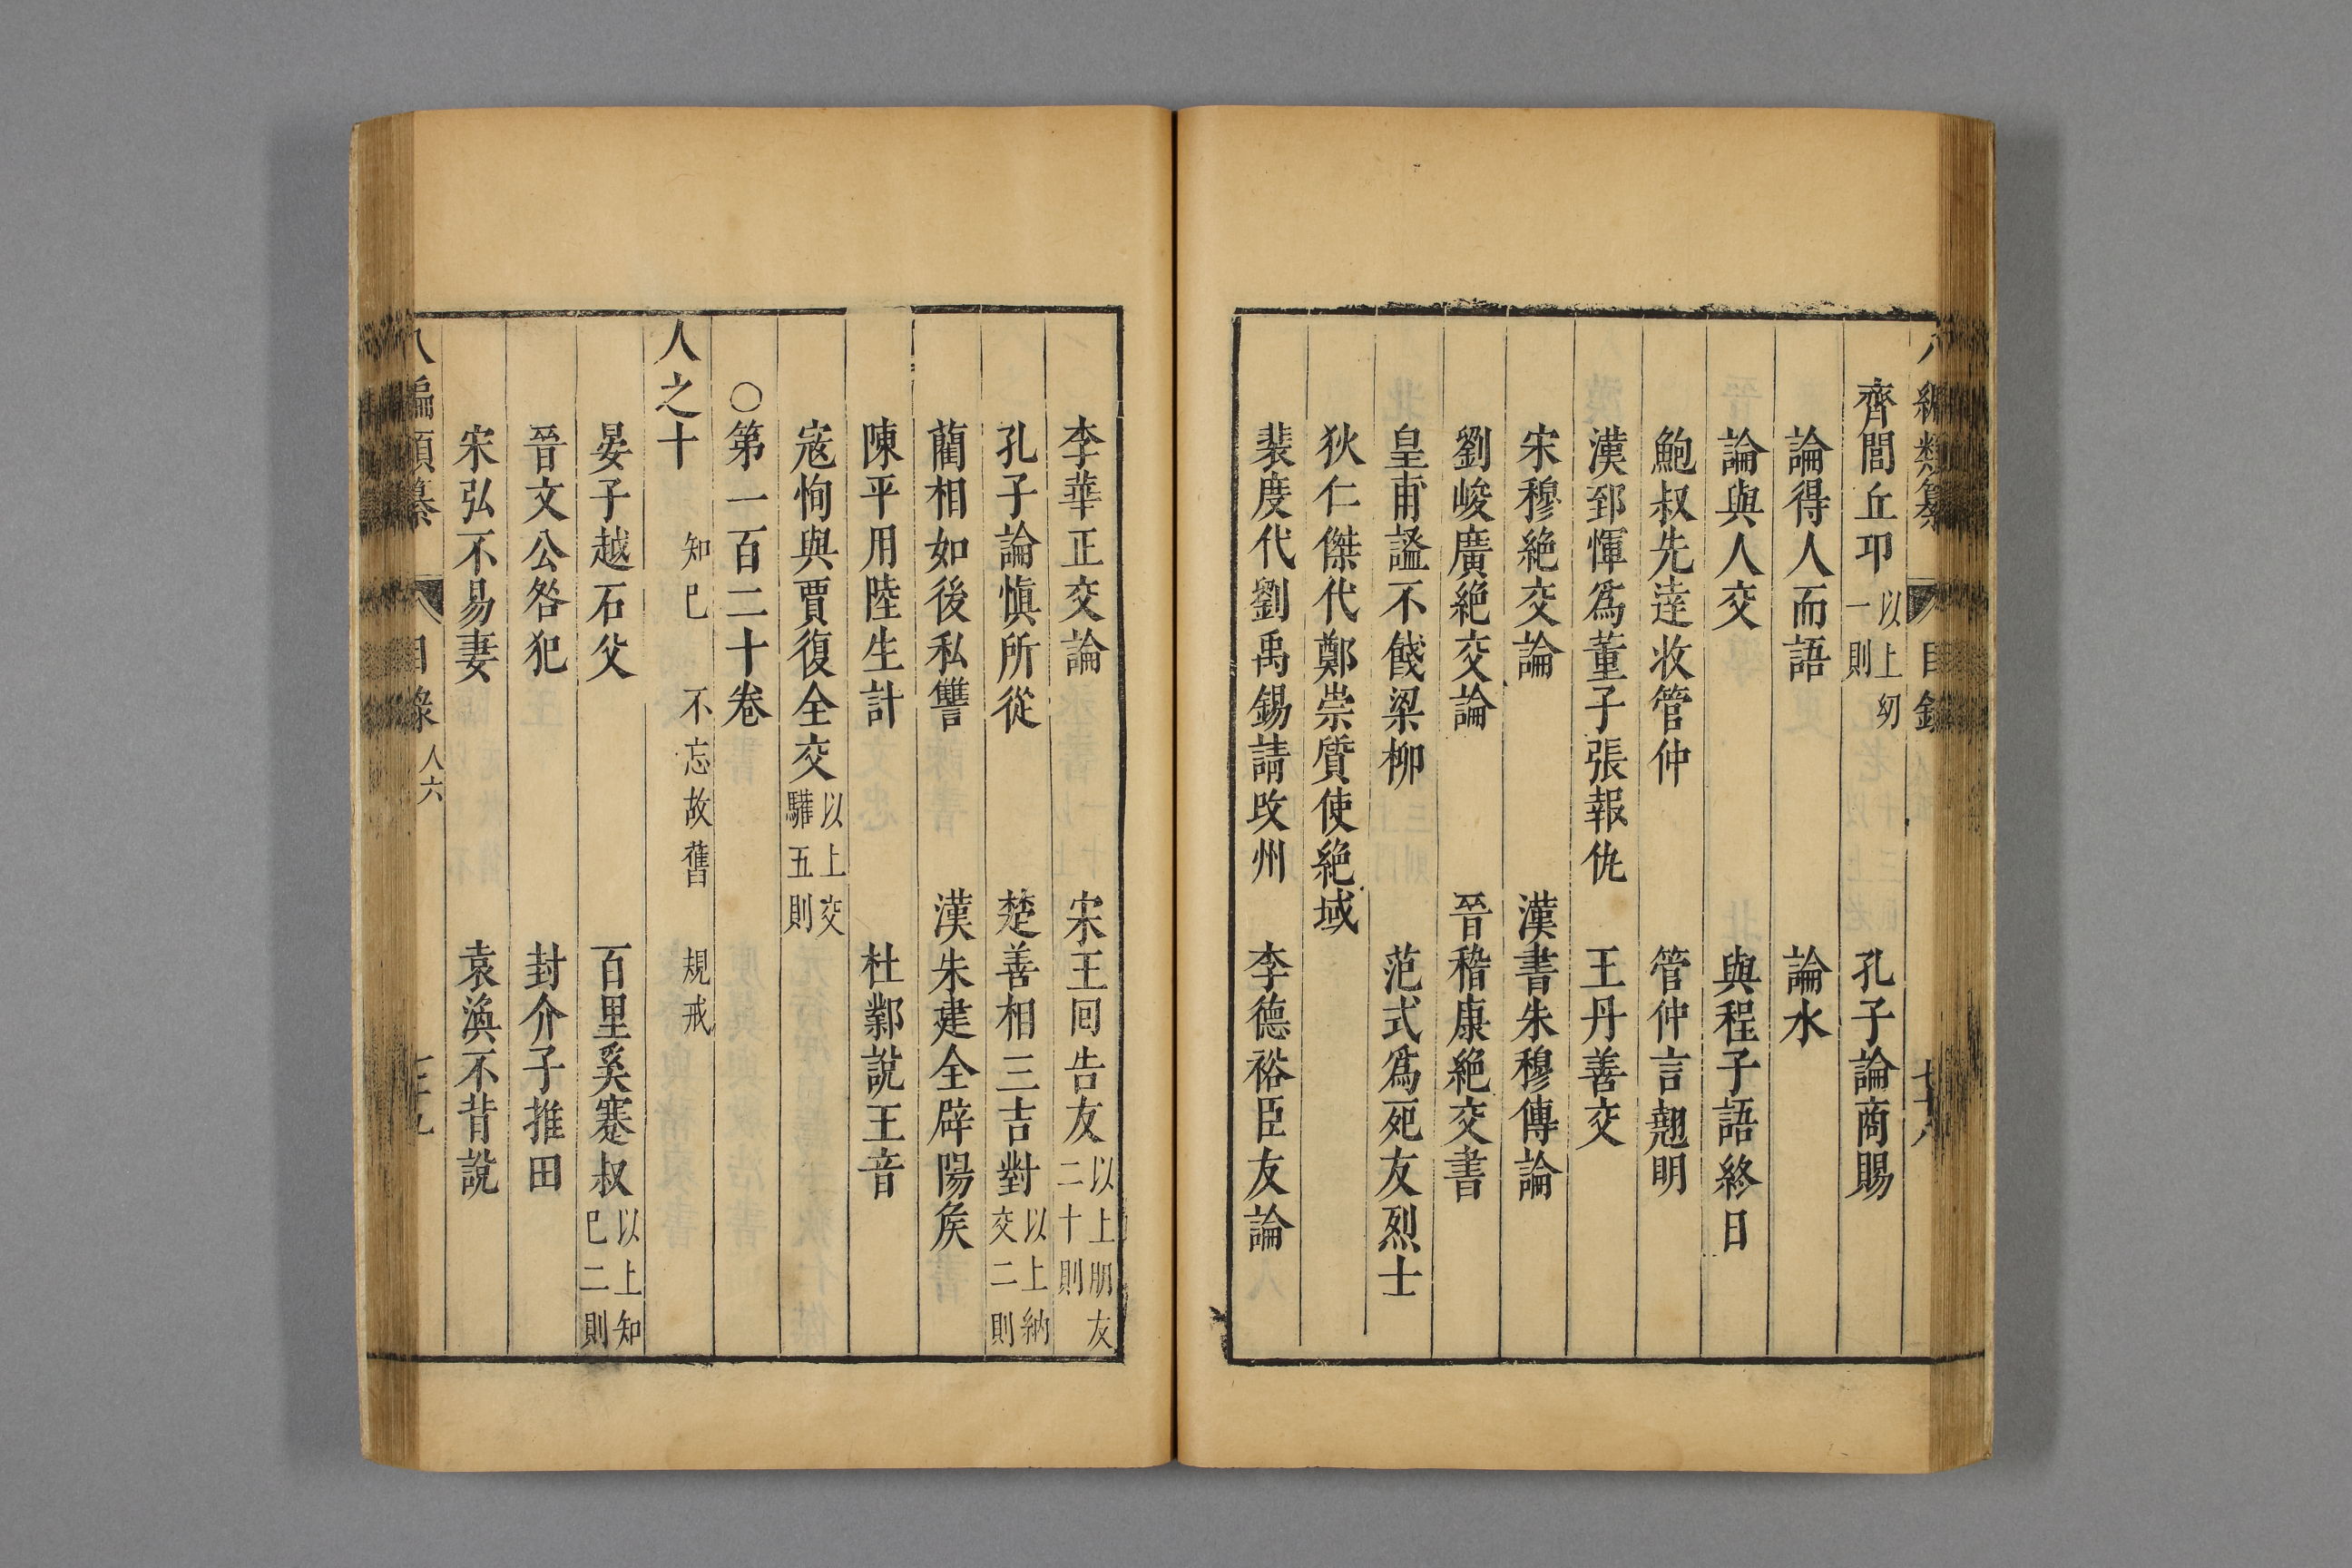 八編類纂 目錄
齊閭丘卭 以上幼一則 孔子論商賜
論得人而語 論水
論與人交 與程子語終日
鮑叔先達收管仲 管仲言趐明
漢郅惲爲董子張報仇 王丹善交
宋穆絶交論 漢書朱穆傳論
劉峻廣絶交論 晉嵇康絶交書
皇甫謐不餞梁柳 范式爲死友烈士
狄仁傑代鄭崇質使絶域
裴度代劉禹錫請改州 李德裕臣友論
李華正交論 宋王囘告友 以上朋友二十則
孔子論愼所從 楚善相三吉對 以上納交二則
藺相如後私讐 漢朱建全辟陽矦
陳平用陸生計 杜鄴說王音
寇恂與賈復全交 以上交驩五則
○第一百二十卷
人之十 知巳 不忘故舊 規戒
晏子越石父 百里奚蹇叔 以上知巳二則
晉文公咎犯 封介子推田
宋弘不易妻 袁渙不背說
八編類纂 目錄 人六